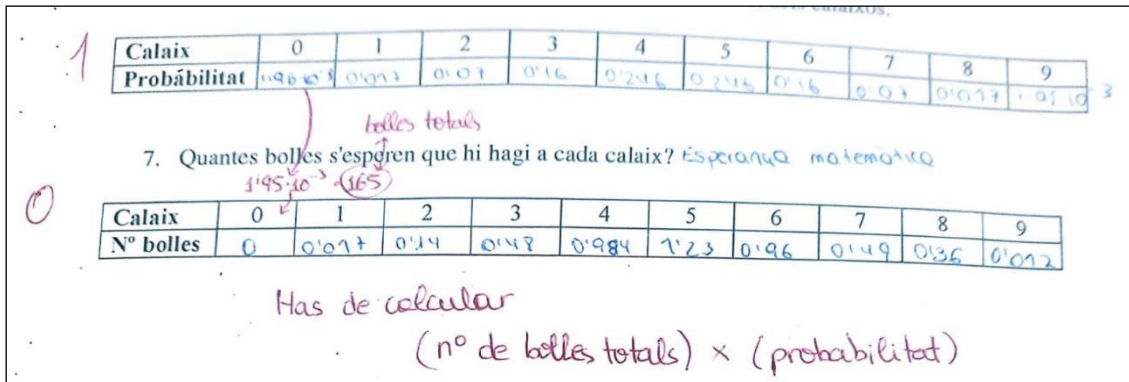 1
Calaix 0 1 2 3 4 5 6 7 8 9
Probabilitat 1'96 10⁻³ 0'017 0'07 0'16 0'246 0'246 0'16 0'07 0'017 1'95 10⁻³
bolles totals
7. Quantes bolles s'esperen que hi hagi a cada calaix? Esperança matemàtica
1'95·10⁻³·165
0
Calaix 0 1 2 3 4 5 6 7 8 9
Nº bolles 0 0'017 0'14 0'48 0'984 1'23 0'96 0'49 0'36 0'012
Has de calcular
(nº de bolles totals) × (probabilitat)